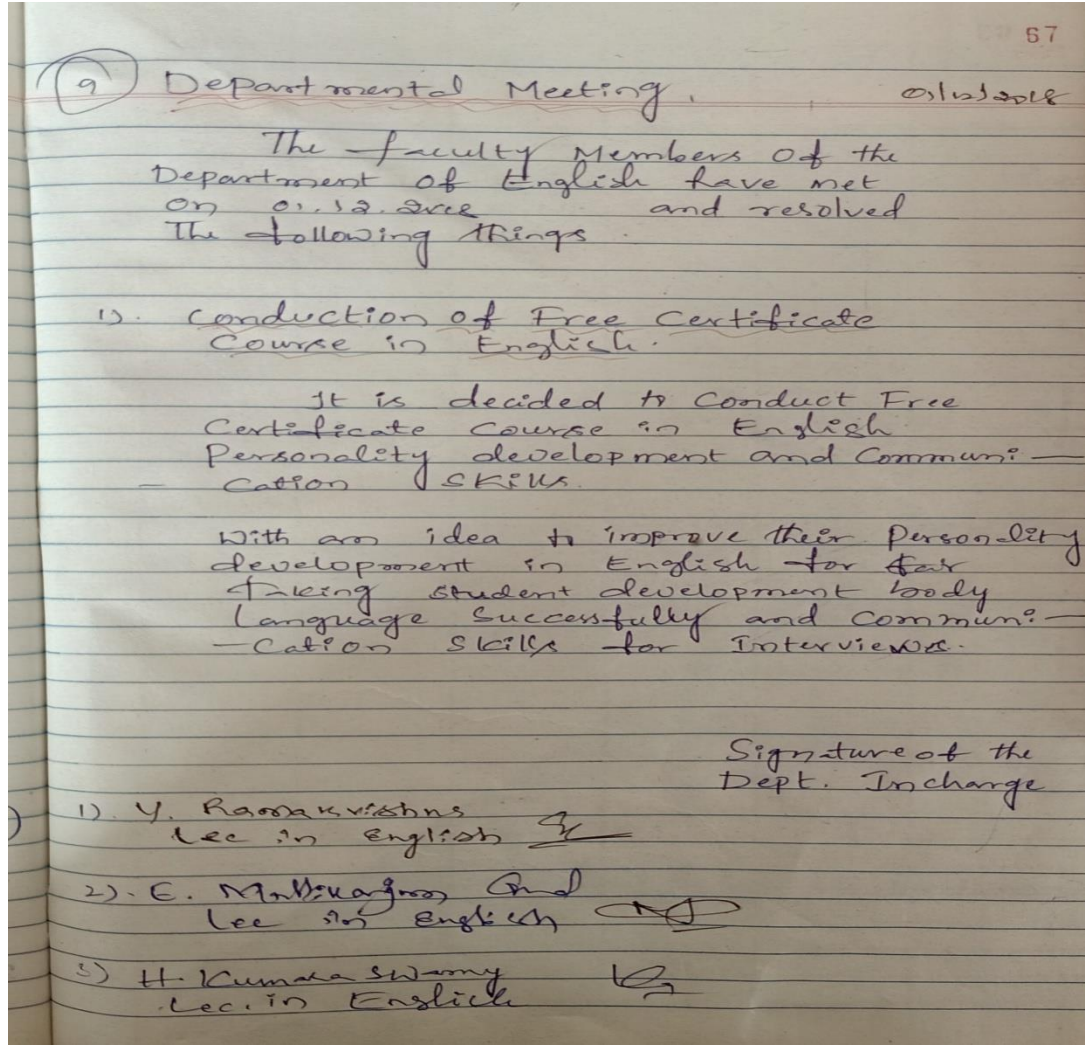 67
9 Departmental Meeting. 01/12/2018
The faculty Members of the
Department of English have met
on 01.12.2018 and resolved
The following things.
1). Conduction of Free Certificate
Course in English.
It is decided to Conduct Free
Certificate Course in English
Personality development and Communi—
— Cation Skills.
With an idea to improve their Personality
development in English for
Taking student development body
Language Successfully and Communi—
—Cation Skills for Interviews.
Signature of the
Dept. Incharge
1). Y. Ramakrishna
Lec in English
2). E. Mallikarjun
Lec in English
3) H. Kumara Swamy
Lec. in English